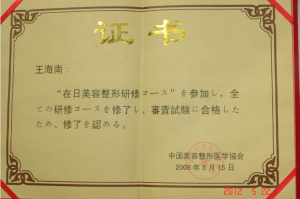 证书
王海南：
“在日美容整形研修コース”を参加し、全
ての研修コースを修了し、審査試験に合格した
ため、修了を認める。
中国美容整形医学協会
2008年5月15日
2012 5 22